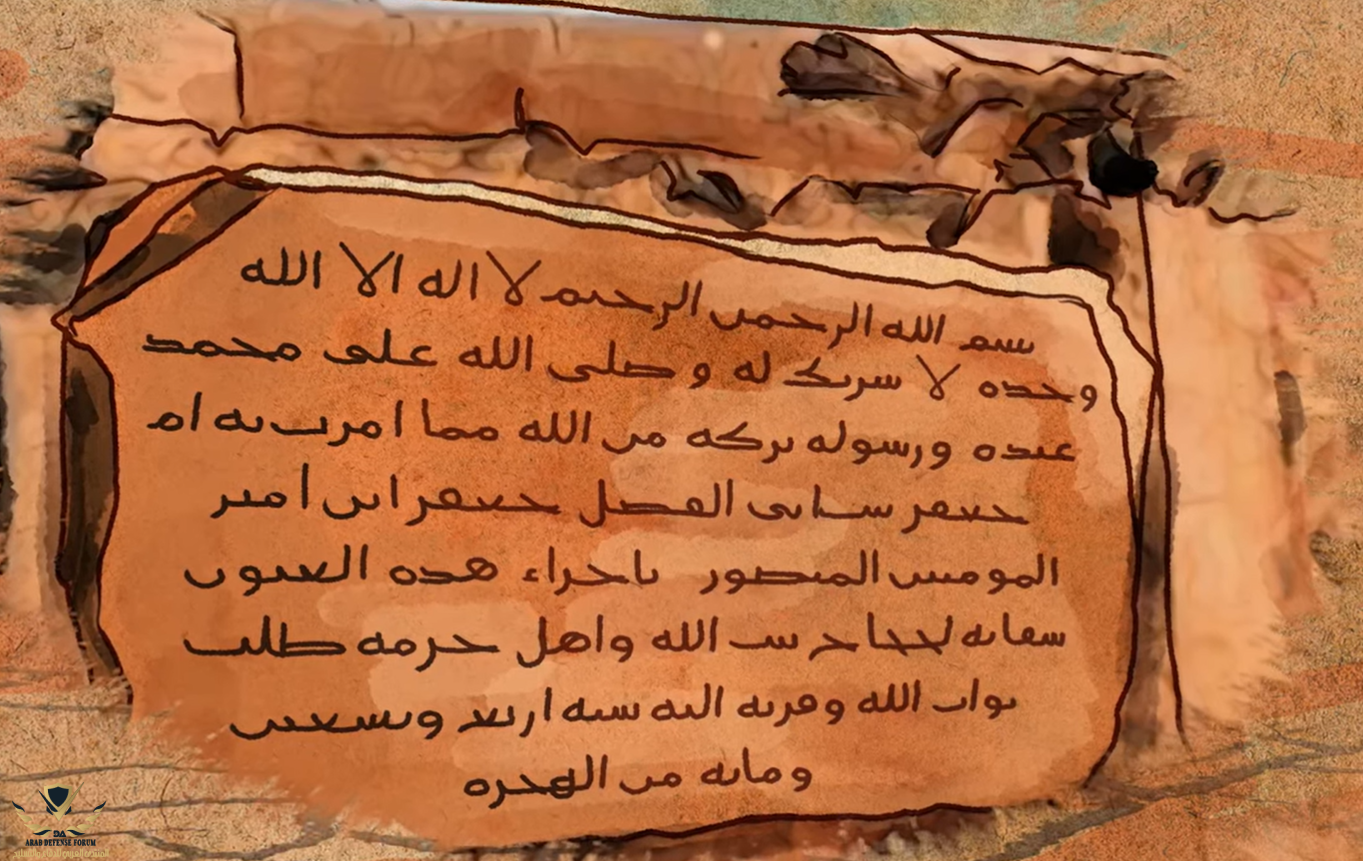 بسم الله الرحمن الرحيم لا اله الا الله
وحده لا سريك له وصلى الله على محمد
عبده ورسوله بركه من الله مما امرت به ام
جعفر ابنت ابى الفضل جعفر ابن امير
المومنين المنصور باجراء هذه العيون
سقايه لحجاج بيت الله واهل حرمه طلب
ثواب الله وقربه اليه سنه اربع وتسعين
ومايه من الهجره
DA
ARAB DEFENSE FORUM